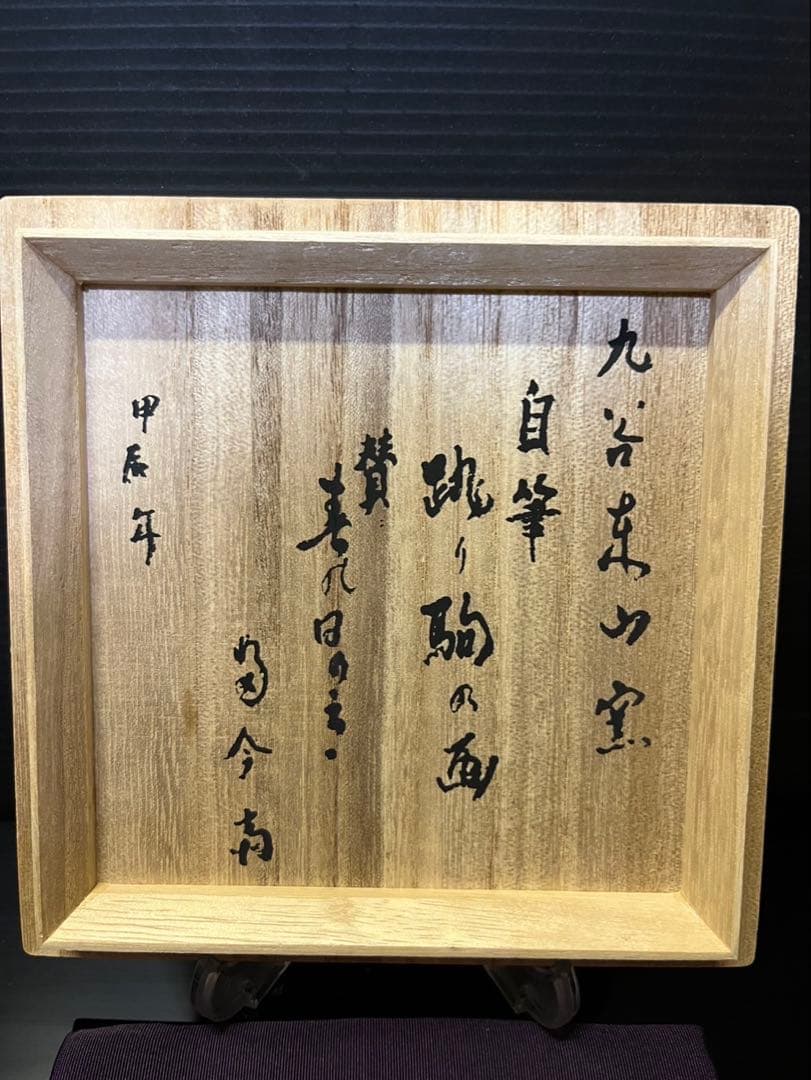 九谷東山窯
自筆
跳り駒の画
賛:
春の日の
今南
甲辰年